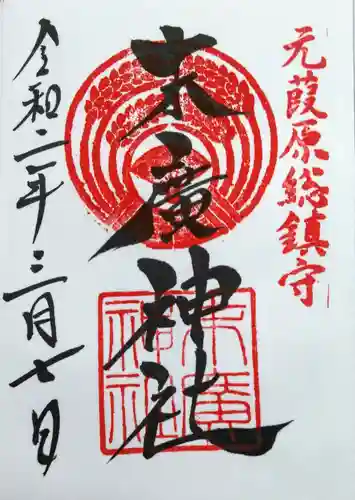 元葭原総鎮守
末廣神社
末廣
神社
令和二年三月七日